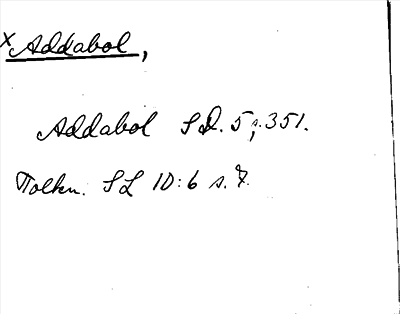 x Addabol,
Addabol SD. 5, s. 351.
Tolkn. SL 10:6 s. 7.